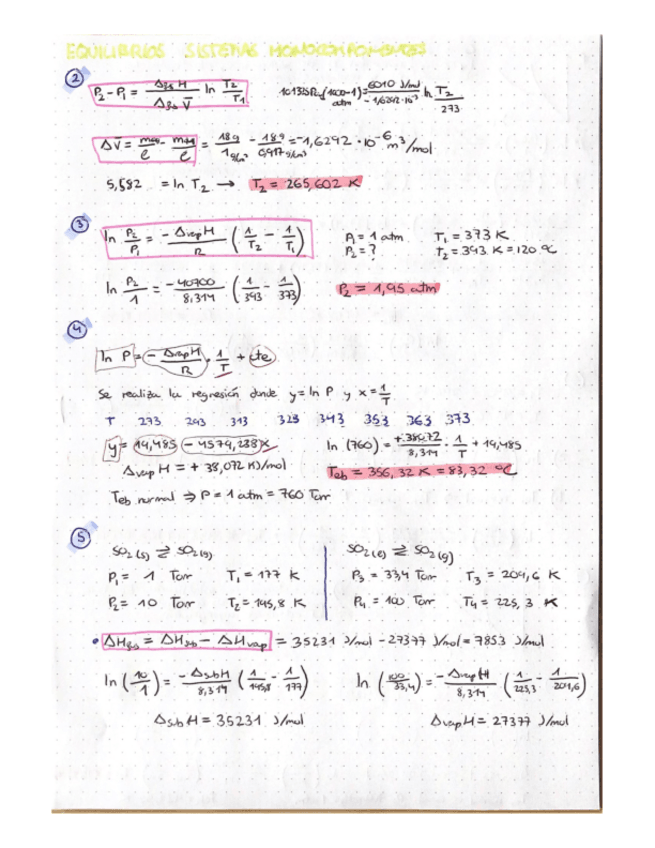 EQUILIBRIOS SISTEMAS MONOCOMPONENTES
2
P2 - P1 = ΔfusH / ΔfusV̄ ln T2/T1
101325 Pa/atm (100-1) = 6010 J/mol / -1,6292·10⁻⁶ ln T2/273
ΔV̄ = m / ρ - m / ρ = 18g / 1 g/cm³ - 18g / 0,917 g/cm³ = -1,6292 · 10⁻⁶ m³/mol
5,582 = ln T2 → T2 = 265,602 K
3
ln P2/P1 = -ΔvapH / R (1/T2 - 1/T1)
P1 = 1 atm T1 = 373 K
P2 = ? T2 = 393 K = 120 ºC
ln P2/1 = -40700 / 8,314 (1/393 - 1/373)
P2 = 1,95 atm
4
ln P = -ΔvapH / R · 1/T + cte
Se realiza la regresión donde y = ln P y x = 1/T
T 273 293 313 323 343 353 363 373
y = 19,485 - 4579,288x
ln (760) = +38072 / 8,314 · 1/T + 19,485
ΔvapH = + 38,072 KJ/mol
Teb = 356,32 K = 83,32 ºC
Teb normal ⇒ P = 1 atm = 760 Torr
5
SO2(s) ⇄ SO2(g)
SO2(l) ⇄ SO2(g)
P1 = 1 Torr T1 = 177 K
P3 = 33,4 Torr T3 = 209,6 K
P2 = 10 Torr T2 = 195,8 K
P4 = 100 Torr T4 = 225,3 K
• ΔHfus = ΔHsub - ΔHvap = 35231 J/mol - 27377 J/mol = 7853 J/mol
ln (10/1) = -ΔsubH / 8,314 (1/195,8 - 1/177)
ln (100/33,4) = -ΔvapH / 8,314 (1/225,3 - 1/209,6)
ΔsubH = 35231 J/mol
ΔvapH = 27377 J/mol